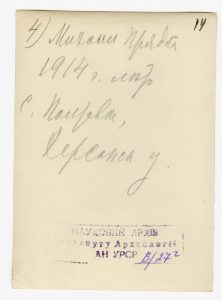 14
4) Михаил Прядка
1914 г. мар
с. Покровка,
Херсонск у.
НАУКОВИЙ АРХІВ
Інституту Археології
АН УРСР В/272